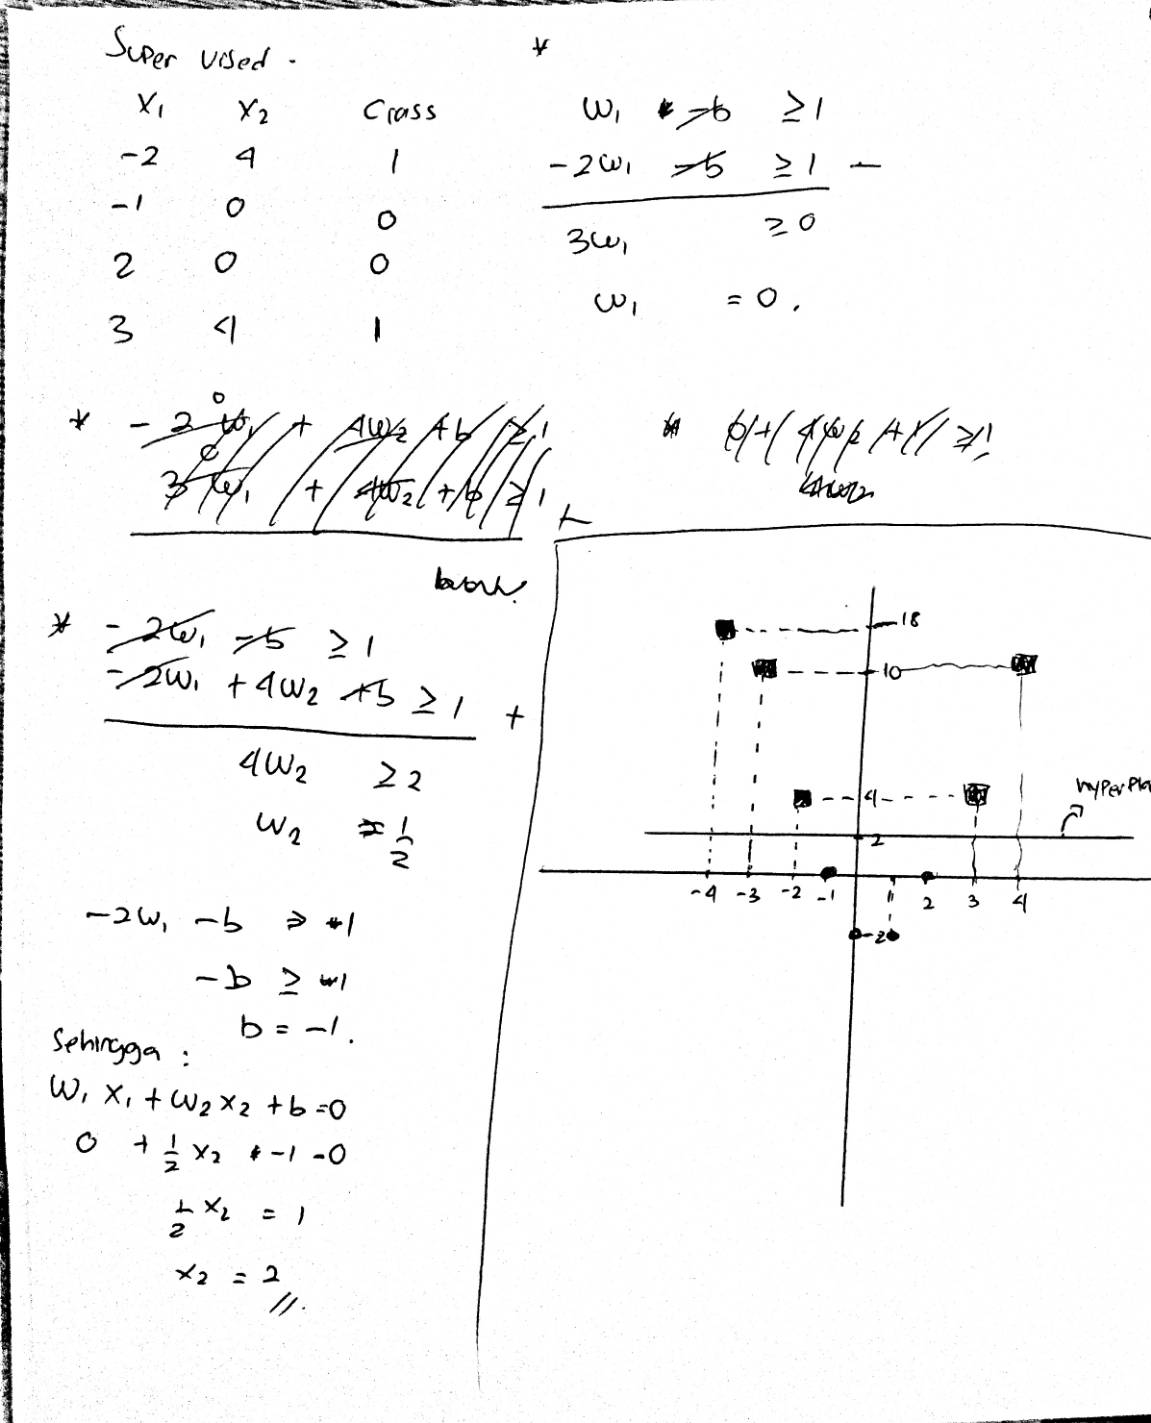 Super vised.
X1 X2 Class
-2 4 1
-1 0 0
2 0 0
3 4 1
*
w1 -b ≥1
-2w1 -b ≥1 -
3w1 ≥0
w1 =0.
* -2w1 + 4w2 +b ≥1
3w1 + 4w2 +b ≥1 +
* 0+ 4w2 ≥1
4w2
* -2w1 -b ≥1
-2w1 +4w2 +b ≥1 +
4w2 ≥2
w2 = 1/2
-2w1 -b ≥ 1
-b ≥ 1
b = -1.
Sehingga :
w1 x1 + w2 x2 + b =0
0 + 1/2 x2 -1 =0
1/2 x2 = 1
x2 = 2 //.
18
10
4
hyperpla
2
-4 -3 -2 -1 1 2 3 4
-2